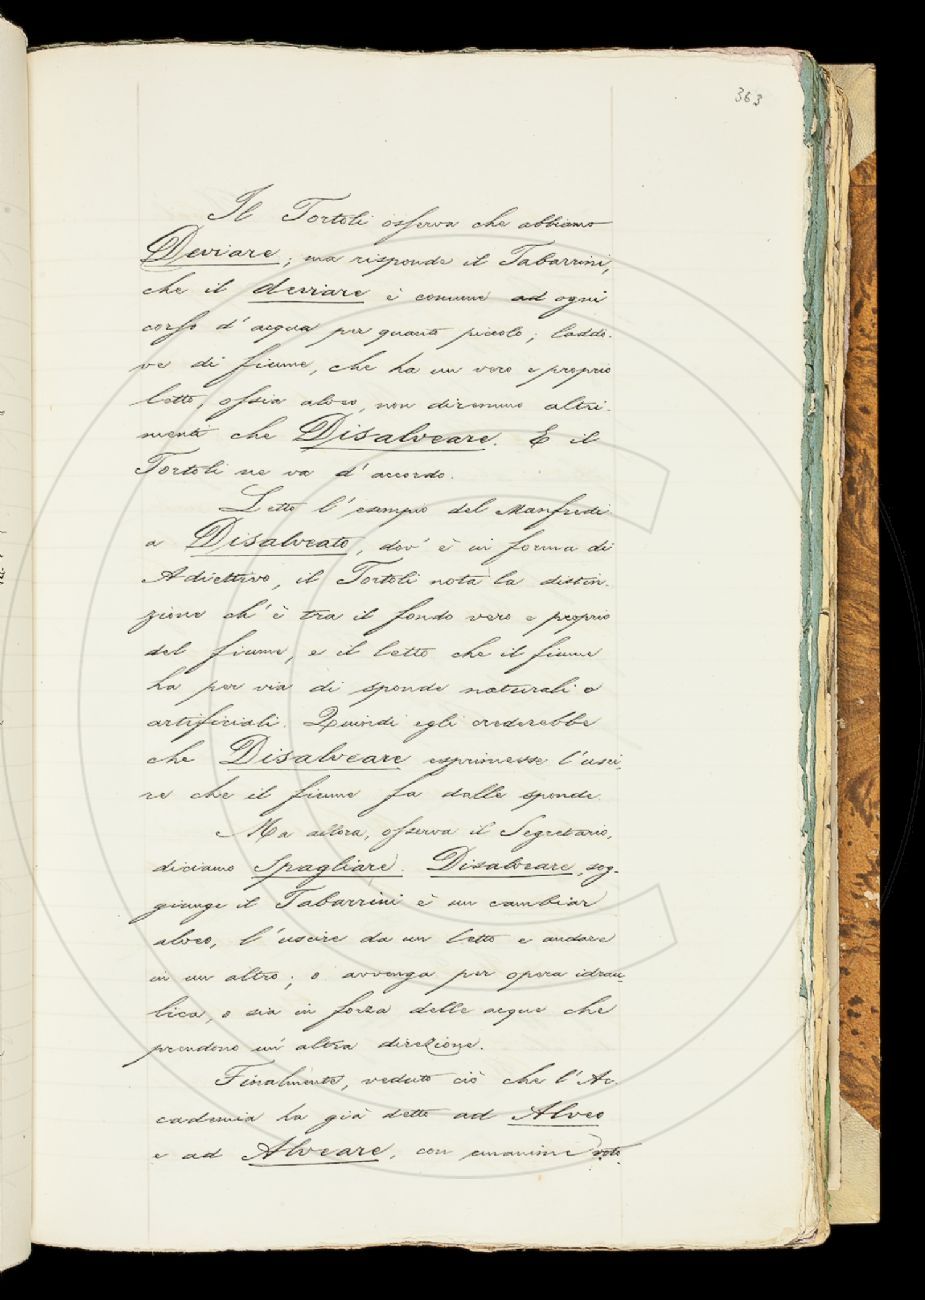 363
Il Tortoli osserva che abbiamo
Deviare; ma risponde il Tabarrini,
che il deviare è comune ad ogni
corso d'acqua per quanto piccolo; laddo-
ve di fiume, che ha un vero e proprio
letto, ossia alveo, non diremmo altri-
menti che Disalveare. E il
Tortoli ne va d'accordo.
Letto l'esempio del Manfredi
a Disalveato, dov'è in forma di
Adiettivo, il Tortoli nota la distin-
zione ch'è tra il fondo vero e proprio
del fiume, e il letto che il fiume
ha per via di sponde naturali o
artificiali. Quindi egli crederebbe
che Disalveare esprimesse l'usci-
re che il fiume fa dalle sponde.
Ma allora, osserva il Segretario,
diciamo Spagliare. Disalveare, sog-
giunge il Tabarrini è un cambiar
alveo, l'uscire da un letto e andare
in un altro; o avvenga per opera idrau-
lica, o sia in forza delle acque che
prendono un'altra direzione.
Finalmente, veduto ciò che l'Ac-
cademia ha già detto ad Alveo
e ad Alveare, con unanime voto